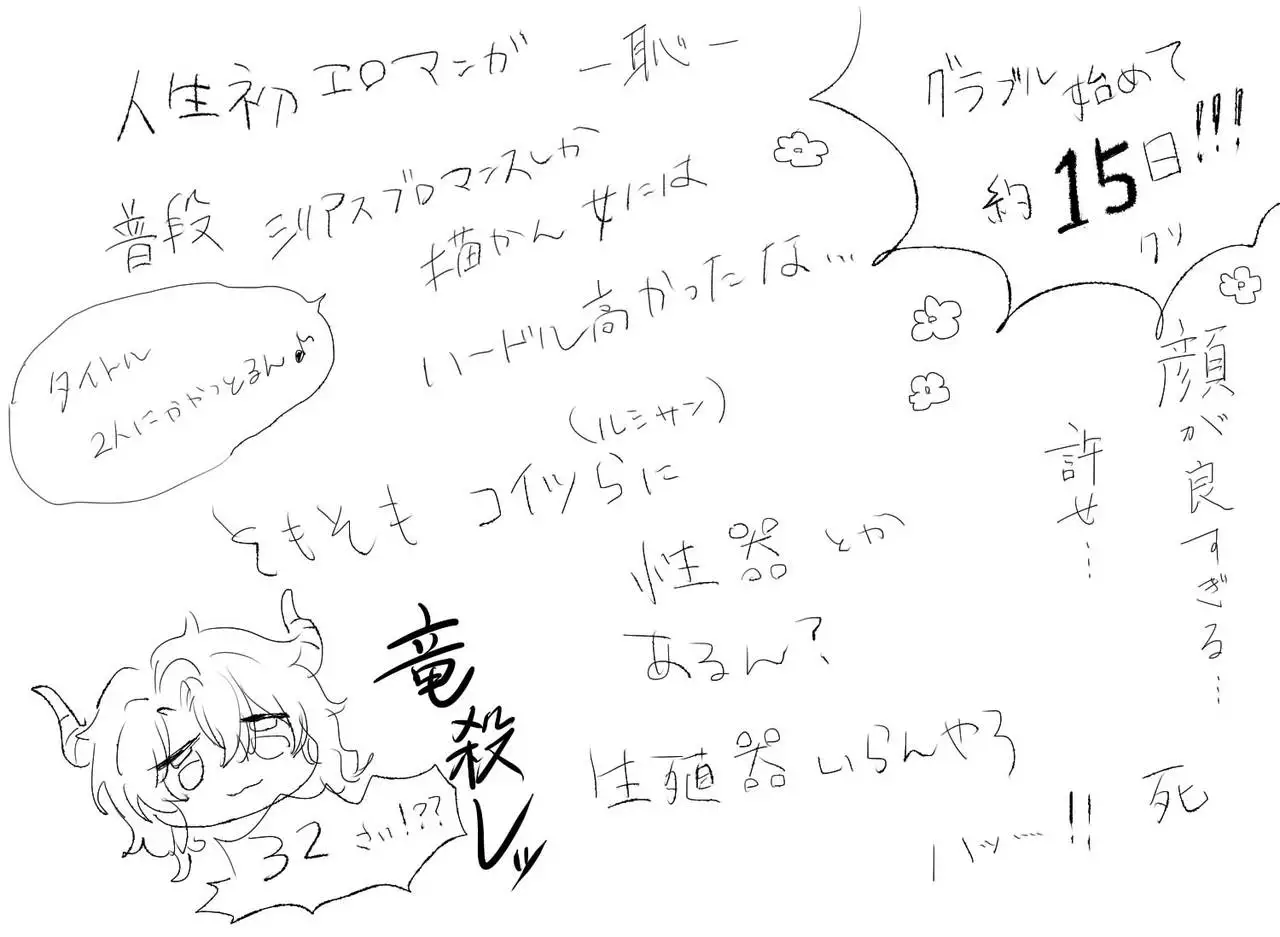 人生初エロマンガ
ー恥ー
普段 シリアスブロマンスしか
描かん女には
ハードル高かったな…
タイトル
2人にかかっとるん♪
グラブル始めて
約15日!!!
(ルシサン)
そもそも コイツらに
性器とか
あるん?
生殖器いらんやろ
ハッ……!!
顔が良すぎる…
許せ…
死
竜殺しッ
32さい!??